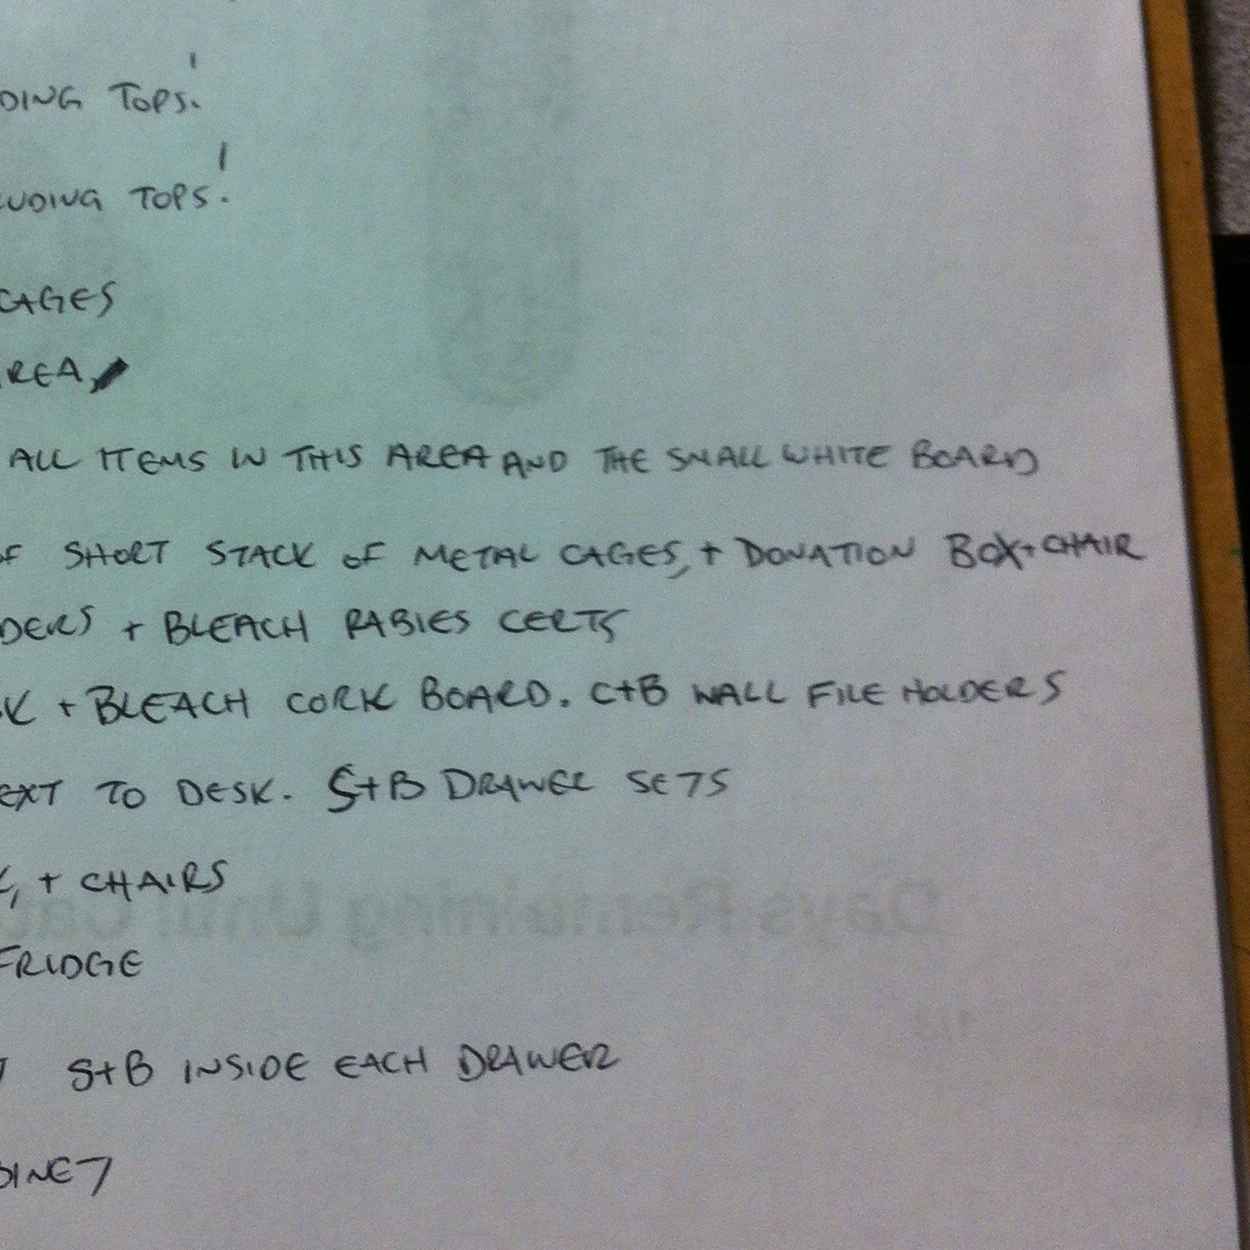 DING TOPS.
UDING TOPS!
CAGES
REA,
ALL ITEMS IN THIS AREA AND THE SMALL WHITE BOARD
OF SHORT STACK OF METAL CAGES, + DONATION BOX + CHAIR
DERS + BLEACH RABIES CERTS
K + BLEACH CORK BOARD. C+B WALL FILE HOLDERS
EXT TO DESK. S+B DRAWER SETS
, + CHAIRS
Days Remaining Until
FRIDGE
S+B INSIDE EACH DRAWER
BINET